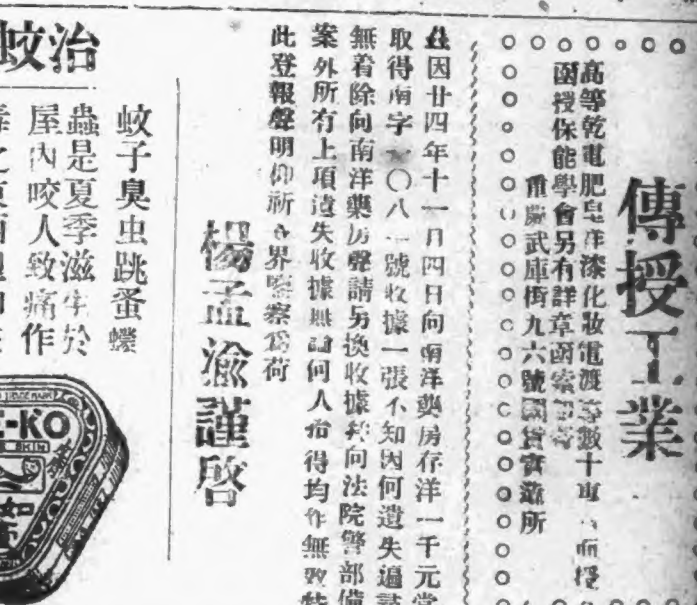 傳授工業
高等乾電肥皂洋漆化妝電渡等數十
面授
函授保能學會另有詳章函索
重慶武庫街九六號國貨實造所
茲因廿四年十一月四日向南洋藥房存洋一千元當
取得南字 〇八一號收據一張不知因何遺失遍
無着除向南洋藥房聲請另換收據 向法院警部備
案外所有上項遺失收據無論何人拾得均作無效特
此登報聲明仰祈各界鑒察為荷
楊孟渝謹啓
治蚊
蚊子臭虫跳蚤蠑
蟲是夏季滋生於
屋內咬人致痛作
E-KO
SKIN
如